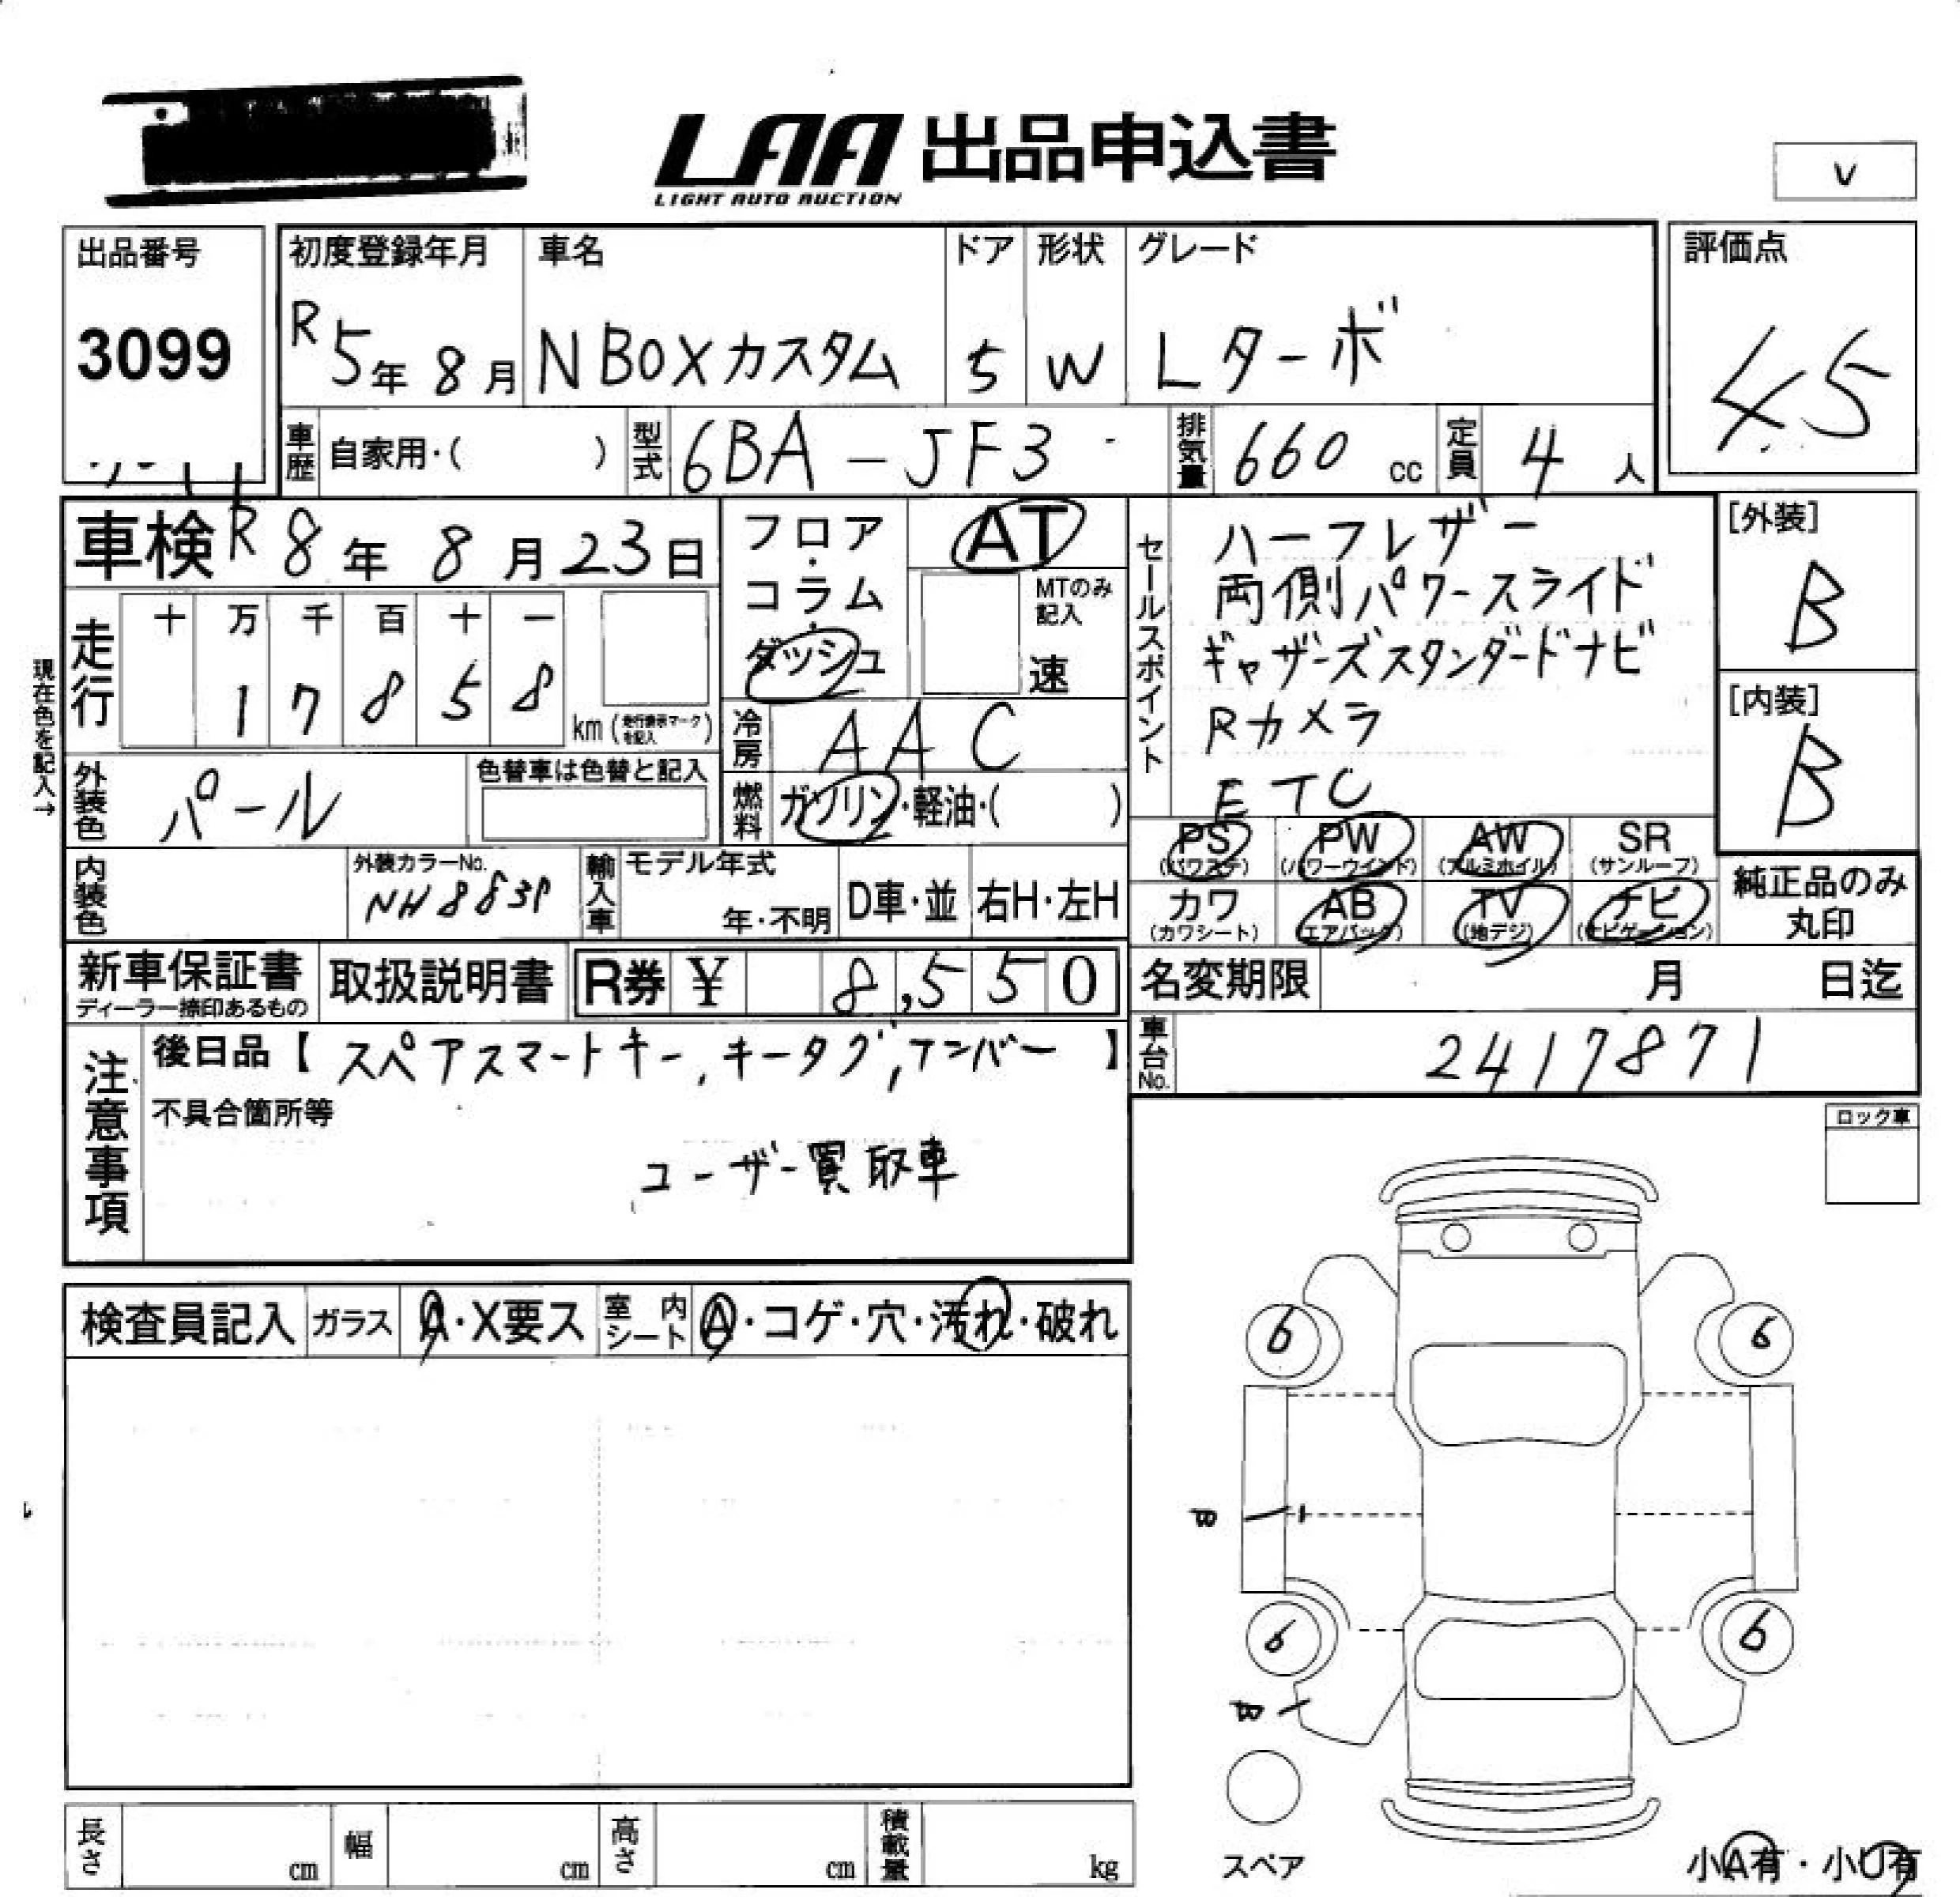 LAA 出品申込書
LIGHT AUTO AUCTION
V
出品番号
3099
初度登録年月
R5年8月
車名
NBOXカスタム
ドア
5
形状
W
グレード
Lターボ
評価点
4.5
車歴
自家用・( )
型式
6BA-JF3
排気量
660 cc
定員
4人
車検 R8年8月23日
フロア・コラム・ダッシュ
AT
MTのみ記入
速
セールスポイント
ハーフレザー
両側パワースライド
ギャザーズスタンダードナビ
Rカメラ
ETC
[外装]
B
[内装]
B
現在色を記入→
走行
十 万 千 百 十 一
1 7 8 5 8
km (走行表示マークを記入)
冷房
AAC
外装色
パール
色替車は色替と記入
燃料
ガソリン・軽油・( )
PS (パワステ)
PW (パワーウインド)
AW (アルミホイル)
SR (サンルーフ)
カワ (カワシート)
AB (エアバック)
TV (地デジ)
ナビ (ナビゲーション)
純正品のみ
丸印
内装色
外装カラーNo.
NH883P
輸入車
モデル年式
年・不明
D車・並
右H・左H
新車保証書
ディーラー捺印あるもの
取扱説明書
R券 ¥ 8,550
名変期限 月 日迄
車台No.
2417871
注意事項
後日品【 スペアスマートキー, キータグ, ナンバー 】
不具合箇所等
ユーザー買取車
ロック車
検査員記入
ガラス
A・X要ス
室内シート
A・コゲ・穴・汚れ・破れ
6
6
6
6
スペア
小A有・小U有
長さ cm
幅 cm
高さ cm
積載量 kg